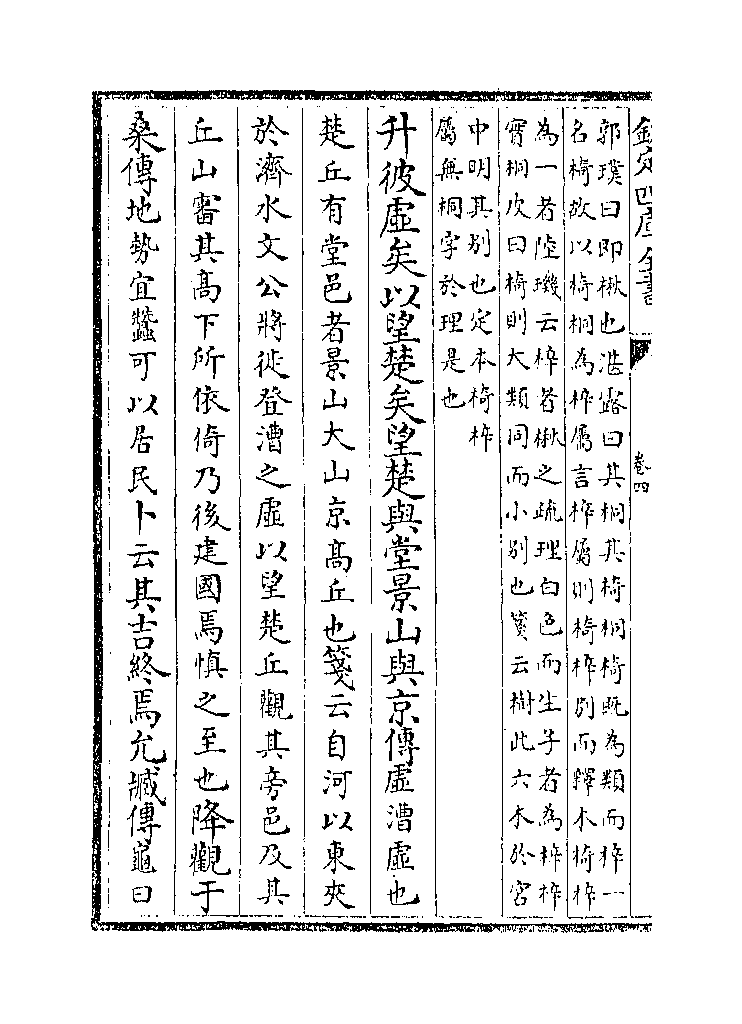 欽定四庫全書
卷四
郭璞曰即楸也湛露曰其桐其椅桐椅既為類而梓一
名椅故以椅桐為梓屬言梓屬則椅梓別而釋木椅梓
為一者陸璣云梓者楸之疏理白色而生子者為梓梓
實桐皮曰椅則大類同而小別也箋云樹此六木於宮
中明其別也定本椅梓
屬無桐字於理是也
升彼虛矣以望楚矣望楚與堂景山與京傳虛漕虛也
楚丘有堂邑者景山大山京髙丘也箋云自河以東夾
於濟水文公將徙登漕之虛以望楚丘觀其旁邑及其
丘山審其髙下所依倚乃後建國焉慎之至也降觀于
桑傳地勢宜蠶可以居民卜云其吉終焉允臧傳龜曰